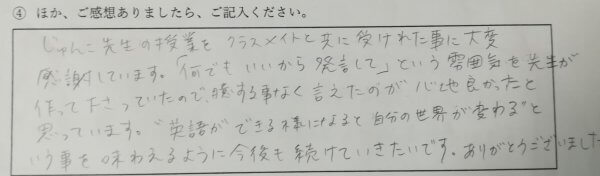 ④ ほか、ご感想ありましたら、ご記入ください。
じゅんこ先生の授業を クラスメイトと共に受けれた事に大変
感謝しています。「何でもいいから発言して」という雰囲気を先生が
作って下さっていたので、臆する事なく言えたのが心地良かったと
思っています。"英語ができる様になると自分の世界が変わる"と
いう事を味わえるように今後も続けていきたいです。ありがとうございました